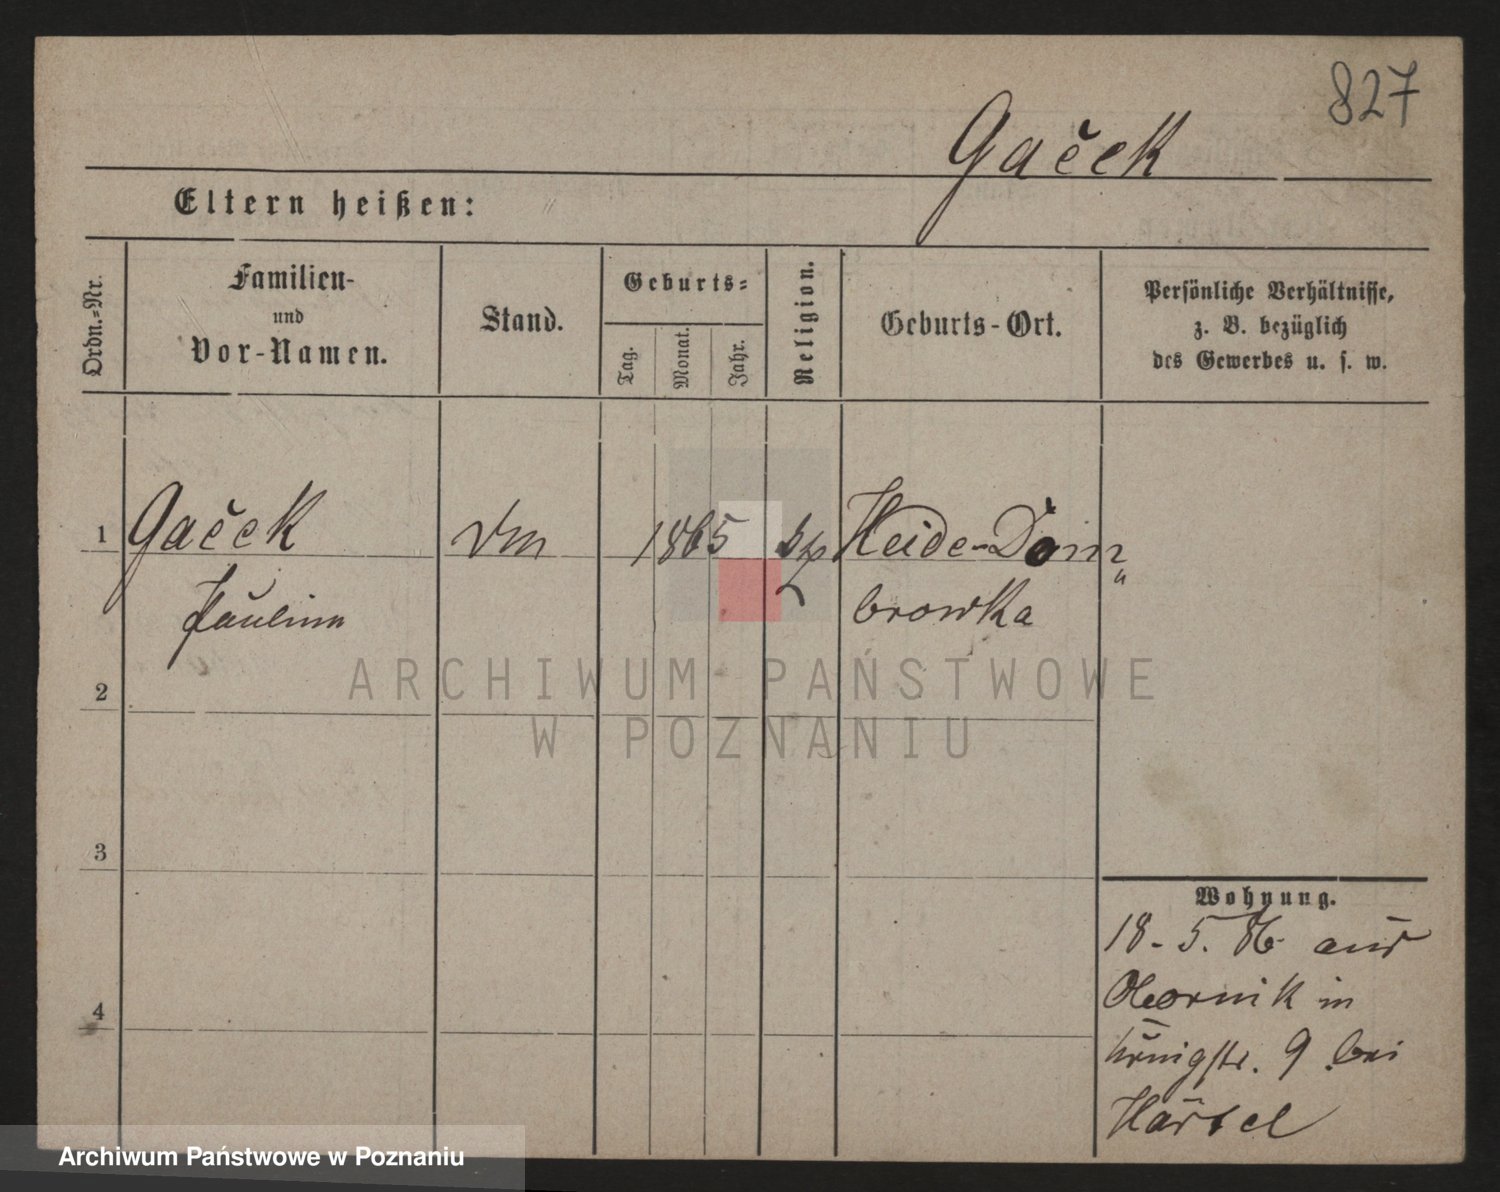 827
Gaček
Eltern heißen:
Ordn.=Nr.
Familien-
und
Vor-Namen.
Stand.
Geburts=
Tag.
Monat.
Jahr.
Religion.
Geburts-Ort.
Persönliche Verhältnisse,
z. B. bezüglich
des Gewerbes u. s. w.
1 Gaček 1865 Heide-Dom„
Paulina browka
2
3
4
Wohnung.
18-5.86 aus
Obornik in
Königstr. 9 bei
Härtel
ARCHIWUM PAŃSTWOWE
W POZNANIU
Archiwum Państwowe w Poznaniu